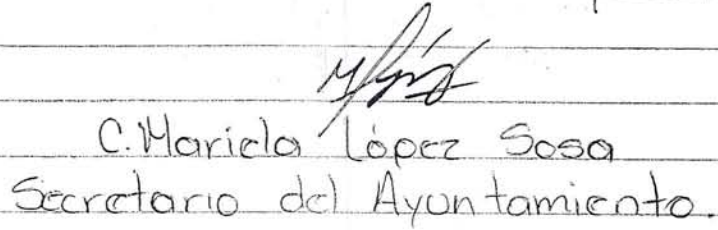 C. Mariela López Sosa
Secretario del Ayuntamiento.